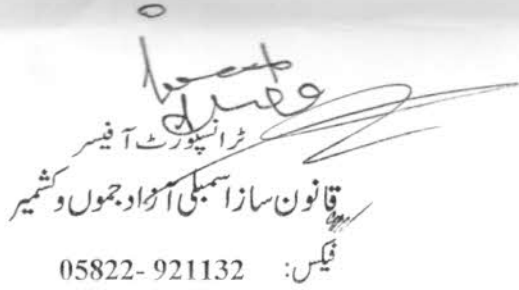 ٹرانسپورٹ آفیسر
قانون ساز اسمبلی آزاد جموں و کشمیر
فیکس: 05822-921132